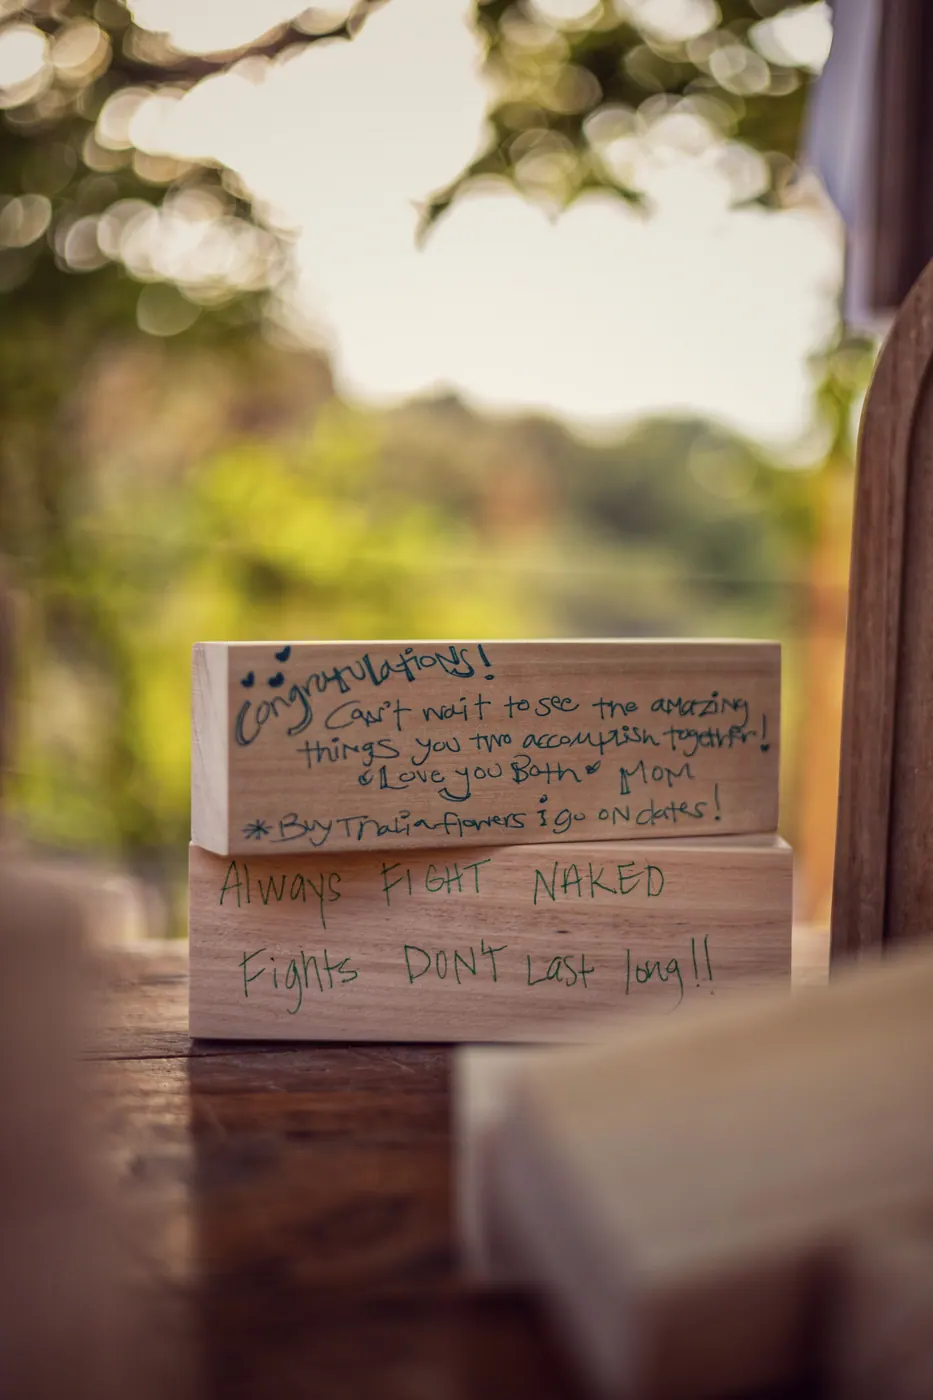 Congratulations!
Can't wait to see the amazing
things you two accomplish together!
Love you Both Mom
*Buy Thalia flowers & go on dates!
Always FIGHT NAKED
Fights DON'T Last long!!